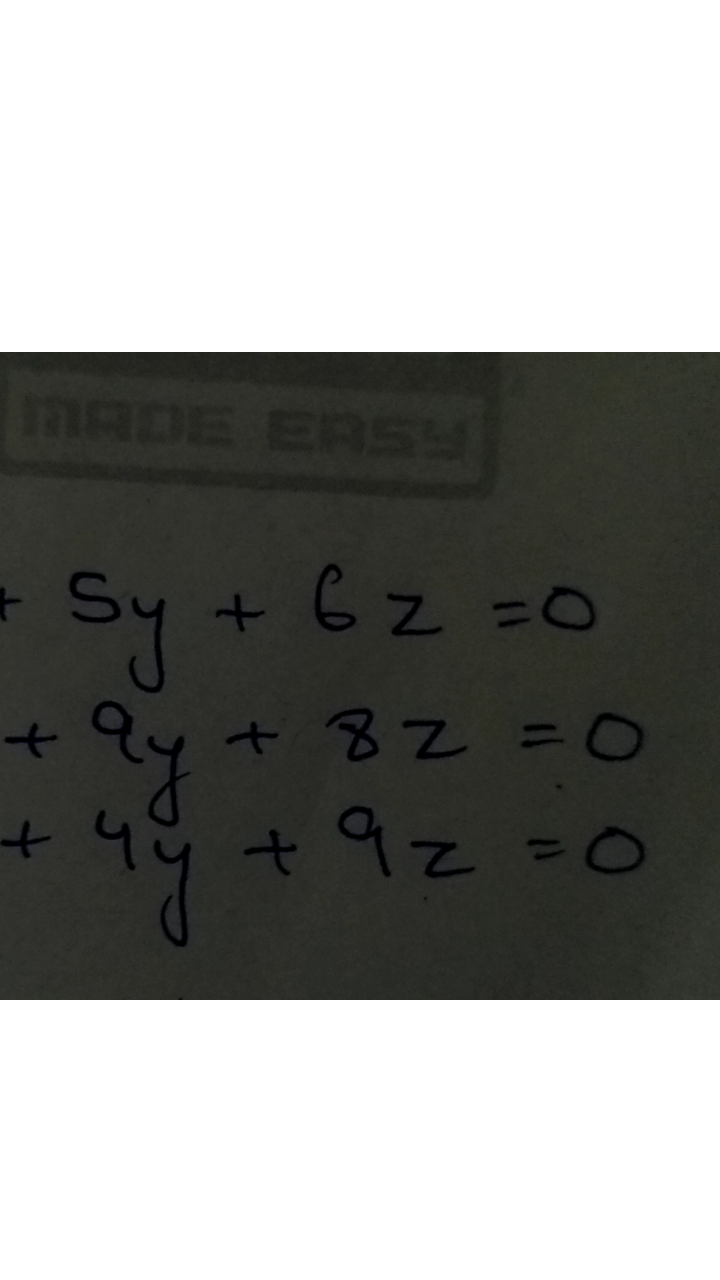 MADE EASY
+ 5y + 6z = 0
+ 9y + 8z = 0
+ 4y + 9z = 0